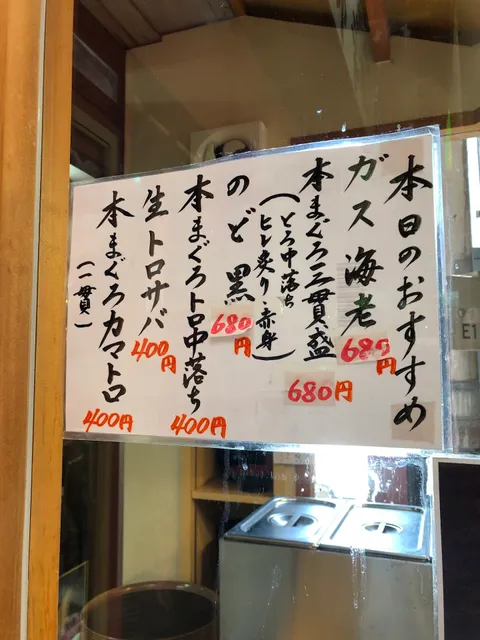 本日のおすすめ
ガス海老
680円
本まぐろ三貫盛
(とろ中落ち
ヒレ炙り・赤身)
680円
のど黒
680円
本まぐろトロ中落ち
400円
生トロサバ
400円
本まぐろカマトロ
(一貫)
400円
E1